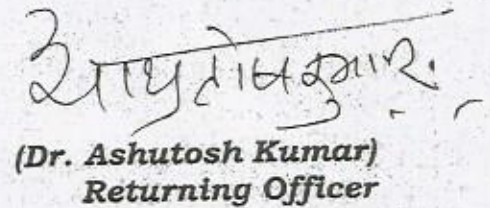 आशुतोष कुमार.
(Dr. Ashutosh Kumar)
Returning Officer